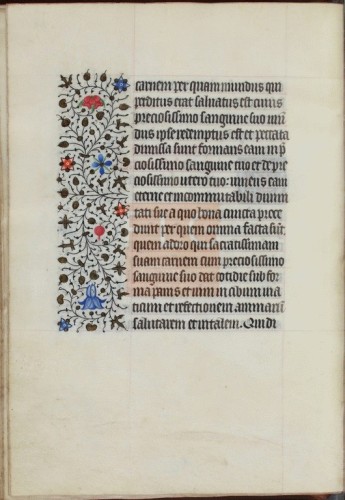 carnem per quam mundus qui
perditus erat saluatus est cuius
preciosissimo sanguine suo mun
dus ipse redemptus est et peccata
dimissa sunt formans eam in p̄
ciosissimo sanguine tuo et de pre
ciosissimo utero tuo: uniens eam
eterne et incommutabili diuini
tati sue a quo bona cuncta proce
dunt per quem omnia facta sūt
quem adoro qui sacratissimam
suam carnem cum preciosissimo
sanguine suo dat cotidie sub for
ma panis et uini in cibum uia
ticum et refectionem animarū
salutarem et uitalem. Qui di